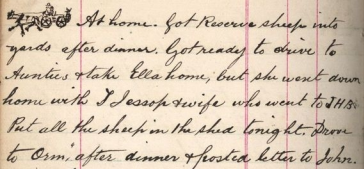 At home. Got Reserve sheep into
yards after dinner. Got ready to drive to
Aunties & take Ella home, but she went down
home with T Jessop & wife who went to J H B's
Put all the sheep in the shed tonight. Drove
to Orm," after dinner & posted letter to John.